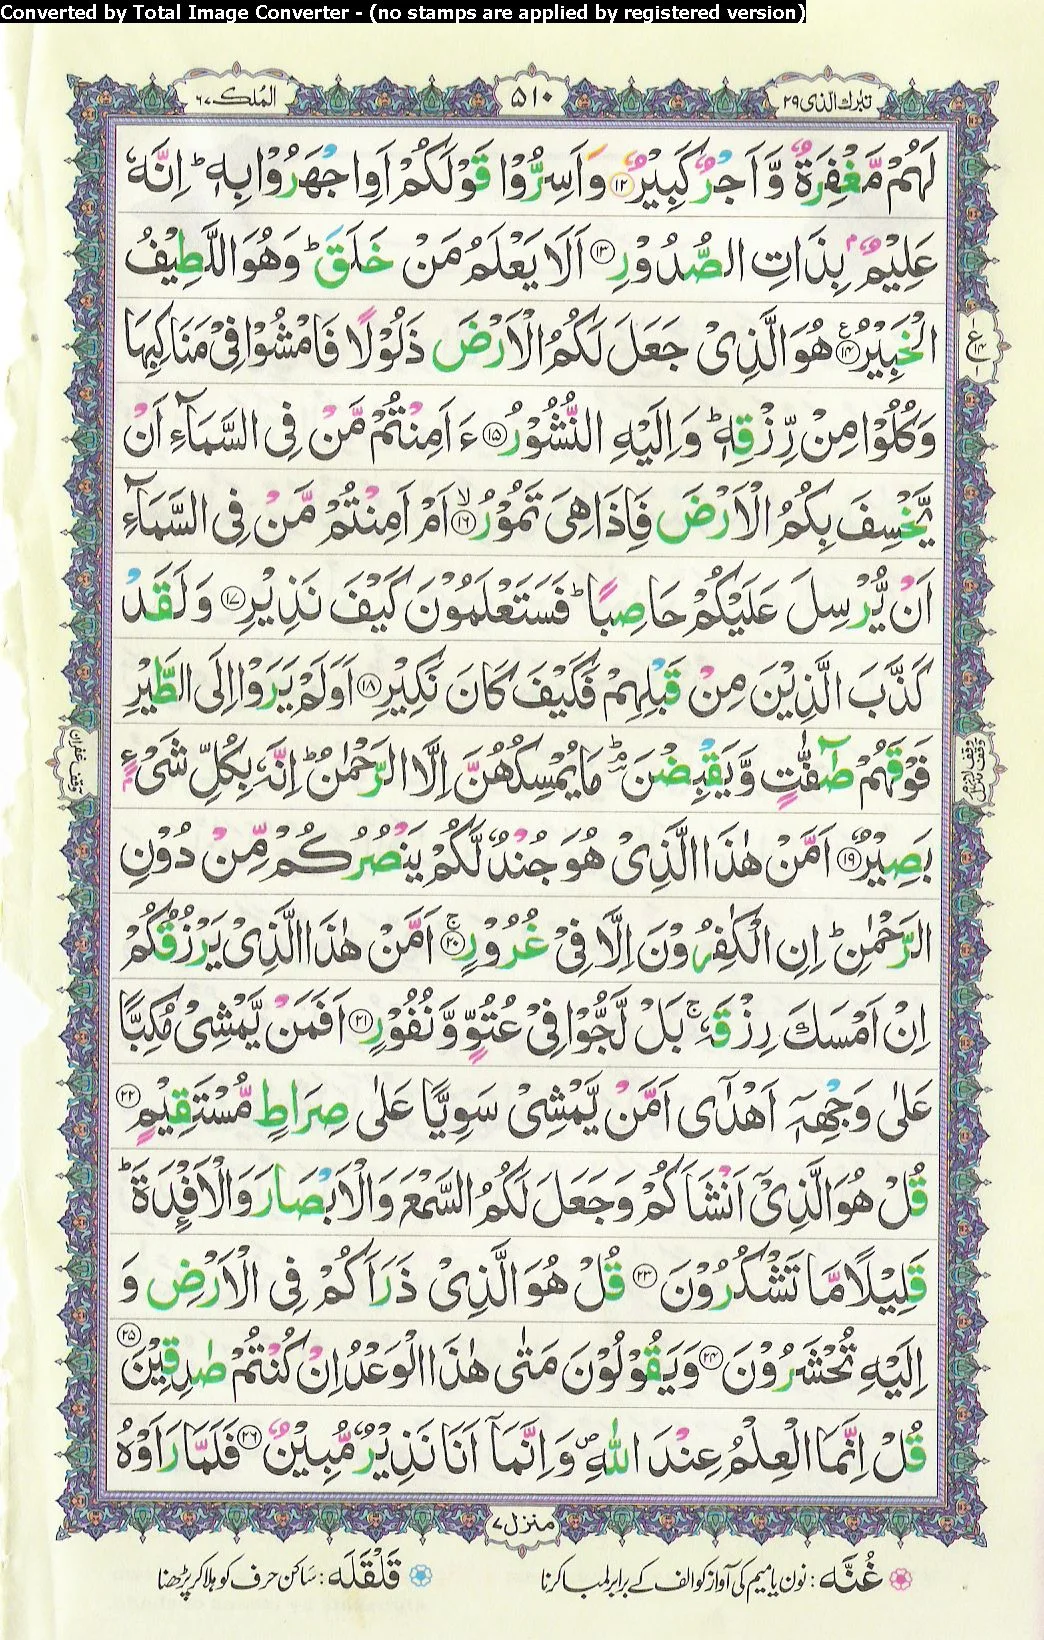 Converted by Total Image Converter - (no stamps are applied by registered version)
تبٰرك الذى ٢٩
۵۱۰
الملك ٦٧
لَهُمْ مَّغْفِرَةٌ وَّاَجْرٌ كَبِيْرٌ ١٢ وَاَسِرُّوْا قَوْلَكُمْ اَوِاجْهَرُوْا بِهٖ ؕ اِنَّهٗ
عَلِيْمٌۢ بِذَاتِ الصُّدُوْرِ ١٣ اَلَا يَعْلَمُ مَنْ خَلَقَ ؕ وَهُوَ اللَّطِيْفُ
الْخَبِيْرُ ١٤ هُوَ الَّذِىْ جَعَلَ لَكُمُ الْاَرْضَ ذَلُوْلًا فَامْشُوْا فِىْ مَنَاكِبِهَا
وَكُلُوْا مِنْ رِّزْقِهٖ ؕ وَاِلَيْهِ النُّشُوْرُ ١٥ ءَاَمِنْتُمْ مَّنْ فِى السَّمَآءِ اَنْ
يَّخْسِفَ بِكُمُ الْاَرْضَ فَاِذَا هِىَ تَمُوْرُ ١٦ۙ اَمْ اَمِنْتُمْ مَّنْ فِى السَّمَآءِ
اَنْ يُّرْسِلَ عَلَيْكُمْ حَاصِبًا ؕ فَسَتَعْلَمُوْنَ كَيْفَ نَذِيْرِ ١٧ وَلَقَدْ
كَذَّبَ الَّذِيْنَ مِنْ قَبْلِهِمْ فَكَيْفَ كَانَ نَكِيْرِ ١٨ اَوَلَمْ يَرَوْا اِلَى الطَّيْرِ
فَوْقَهُمْ صٰٓفّٰتٍ وَّيَقْبِضْنَ ؕ مَا يُمْسِكُهُنَّ اِلَّا الرَّحْمٰنُ ؕ اِنَّهٗ بِكُلِّ شَىْءٍۢ
بَصِيْرٌ ١٩ اَمَّنْ هٰذَا الَّذِىْ هُوَ جُنْدٌ لَّكُمْ يَنْصُرُكُمْ مِّنْ دُوْنِ
الرَّحْمٰنِ ؕ اِنِ الْكٰفِرُوْنَ اِلَّا فِىْ غُرُوْرٍ ٢٠ۚ اَمَّنْ هٰذَا الَّذِىْ يَرْزُقُكُمْ
اِنْ اَمْسَكَ رِزْقَهٗ ۚ بَلْ لَّجُّوْا فِىْ عُتُوٍّ وَّنُفُوْرٍ ٢١ اَفَمَنْ يَّمْشِىْ مُكِبًّا
عَلٰى وَجْهِهٖۤ اَهْدٰٓى اَمَّنْ يَّمْشِىْ سَوِيًّا عَلٰى صِرَاطٍ مُّسْتَقِيْمٍ ٢٢
قُلْ هُوَ الَّذِىْۤ اَنْشَاَكُمْ وَجَعَلَ لَكُمُ السَّمْعَ وَالْاَبْصَارَ وَالْاَفْـِٕدَةَ ؕ
قَلِيْلًا مَّا تَشْكُرُوْنَ ٢٣ قُلْ هُوَ الَّذِىْ ذَرَاَكُمْ فِى الْاَرْضِ وَ
اِلَيْهِ تُحْشَرُوْنَ ٢٤ وَيَقُوْلُوْنَ مَتٰى هٰذَا الْوَعْدُ اِنْ كُنْتُمْ صٰدِقِيْنَ ٢٥
قُلْ اِنَّمَا الْعِلْمُ عِنْدَ اللّٰهِ ۪ وَاِنَّمَاۤ اَنَا نَذِيْرٌ مُّبِيْنٌ ٢٦ فَلَمَّا رَاَوْهُ
منزل ٧
غُنَّه : نون یا میم کی آواز کو الف کے برابر لمبا کرنا قَلْقَلَه : ساکن حرف کو ہلا کر پڑھنا